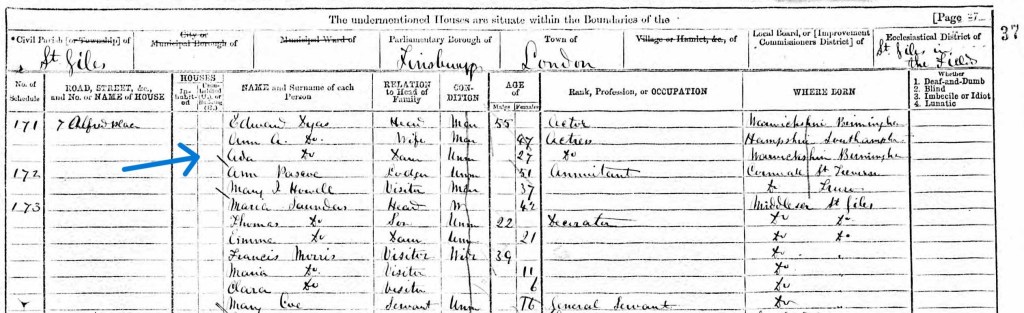 The undermentioned Houses are situate within the Boundaries of the [Page 37
37
*Civil Parish [or Township] of City or Municipal Borough of Municipal Ward of Parliamentary Borough of Town of Village or Hamlet, &c., of Local Board, or [Improvement Commissioners District] of Ecclesiastical District of
St Giles Finsbury London St Giles in the Fields
No. of Schedule ROAD, STREET, &c., and No. or NAME of HOUSE HOUSES In-habit-ed Unin-habited (U.), or Building (B.) NAME and Surname of each Person RELATION to Head of Family CON-DITION AGE of Males Females Rank, Profession, or OCCUPATION WHERE BORN Whether 1. Deaf-and-Dumb 2. Blind 3. Imbecile or Idiot 4. Lunatic
171 7 Alfred Place Edward Dyas Head Mar 55 Actor Warwickshire Birmingham
Ann A. Do. Wife Mar 47 Actress Hampshire Southampton
Ada Do Daur Unm 27 Do Warwickshire Birmingham
172 Ann Pascoe Lodger Unm 51 Annuitant Cornwall St
Mary J Howell Visitor Mar 37 Do Truro
173 Maria Saunders Head W 42 Middlesex St Giles
Thomas Do Son Unm 22 Decorator Do Do
Emma Do Daur Unm 21 Do Do
Francis Morris Visitor Wife 39 Do
Maria Do Visitor 11 Do
Clara Do Visitor 6 Do
Mary Coe Servant Unm 16 General Servant Do